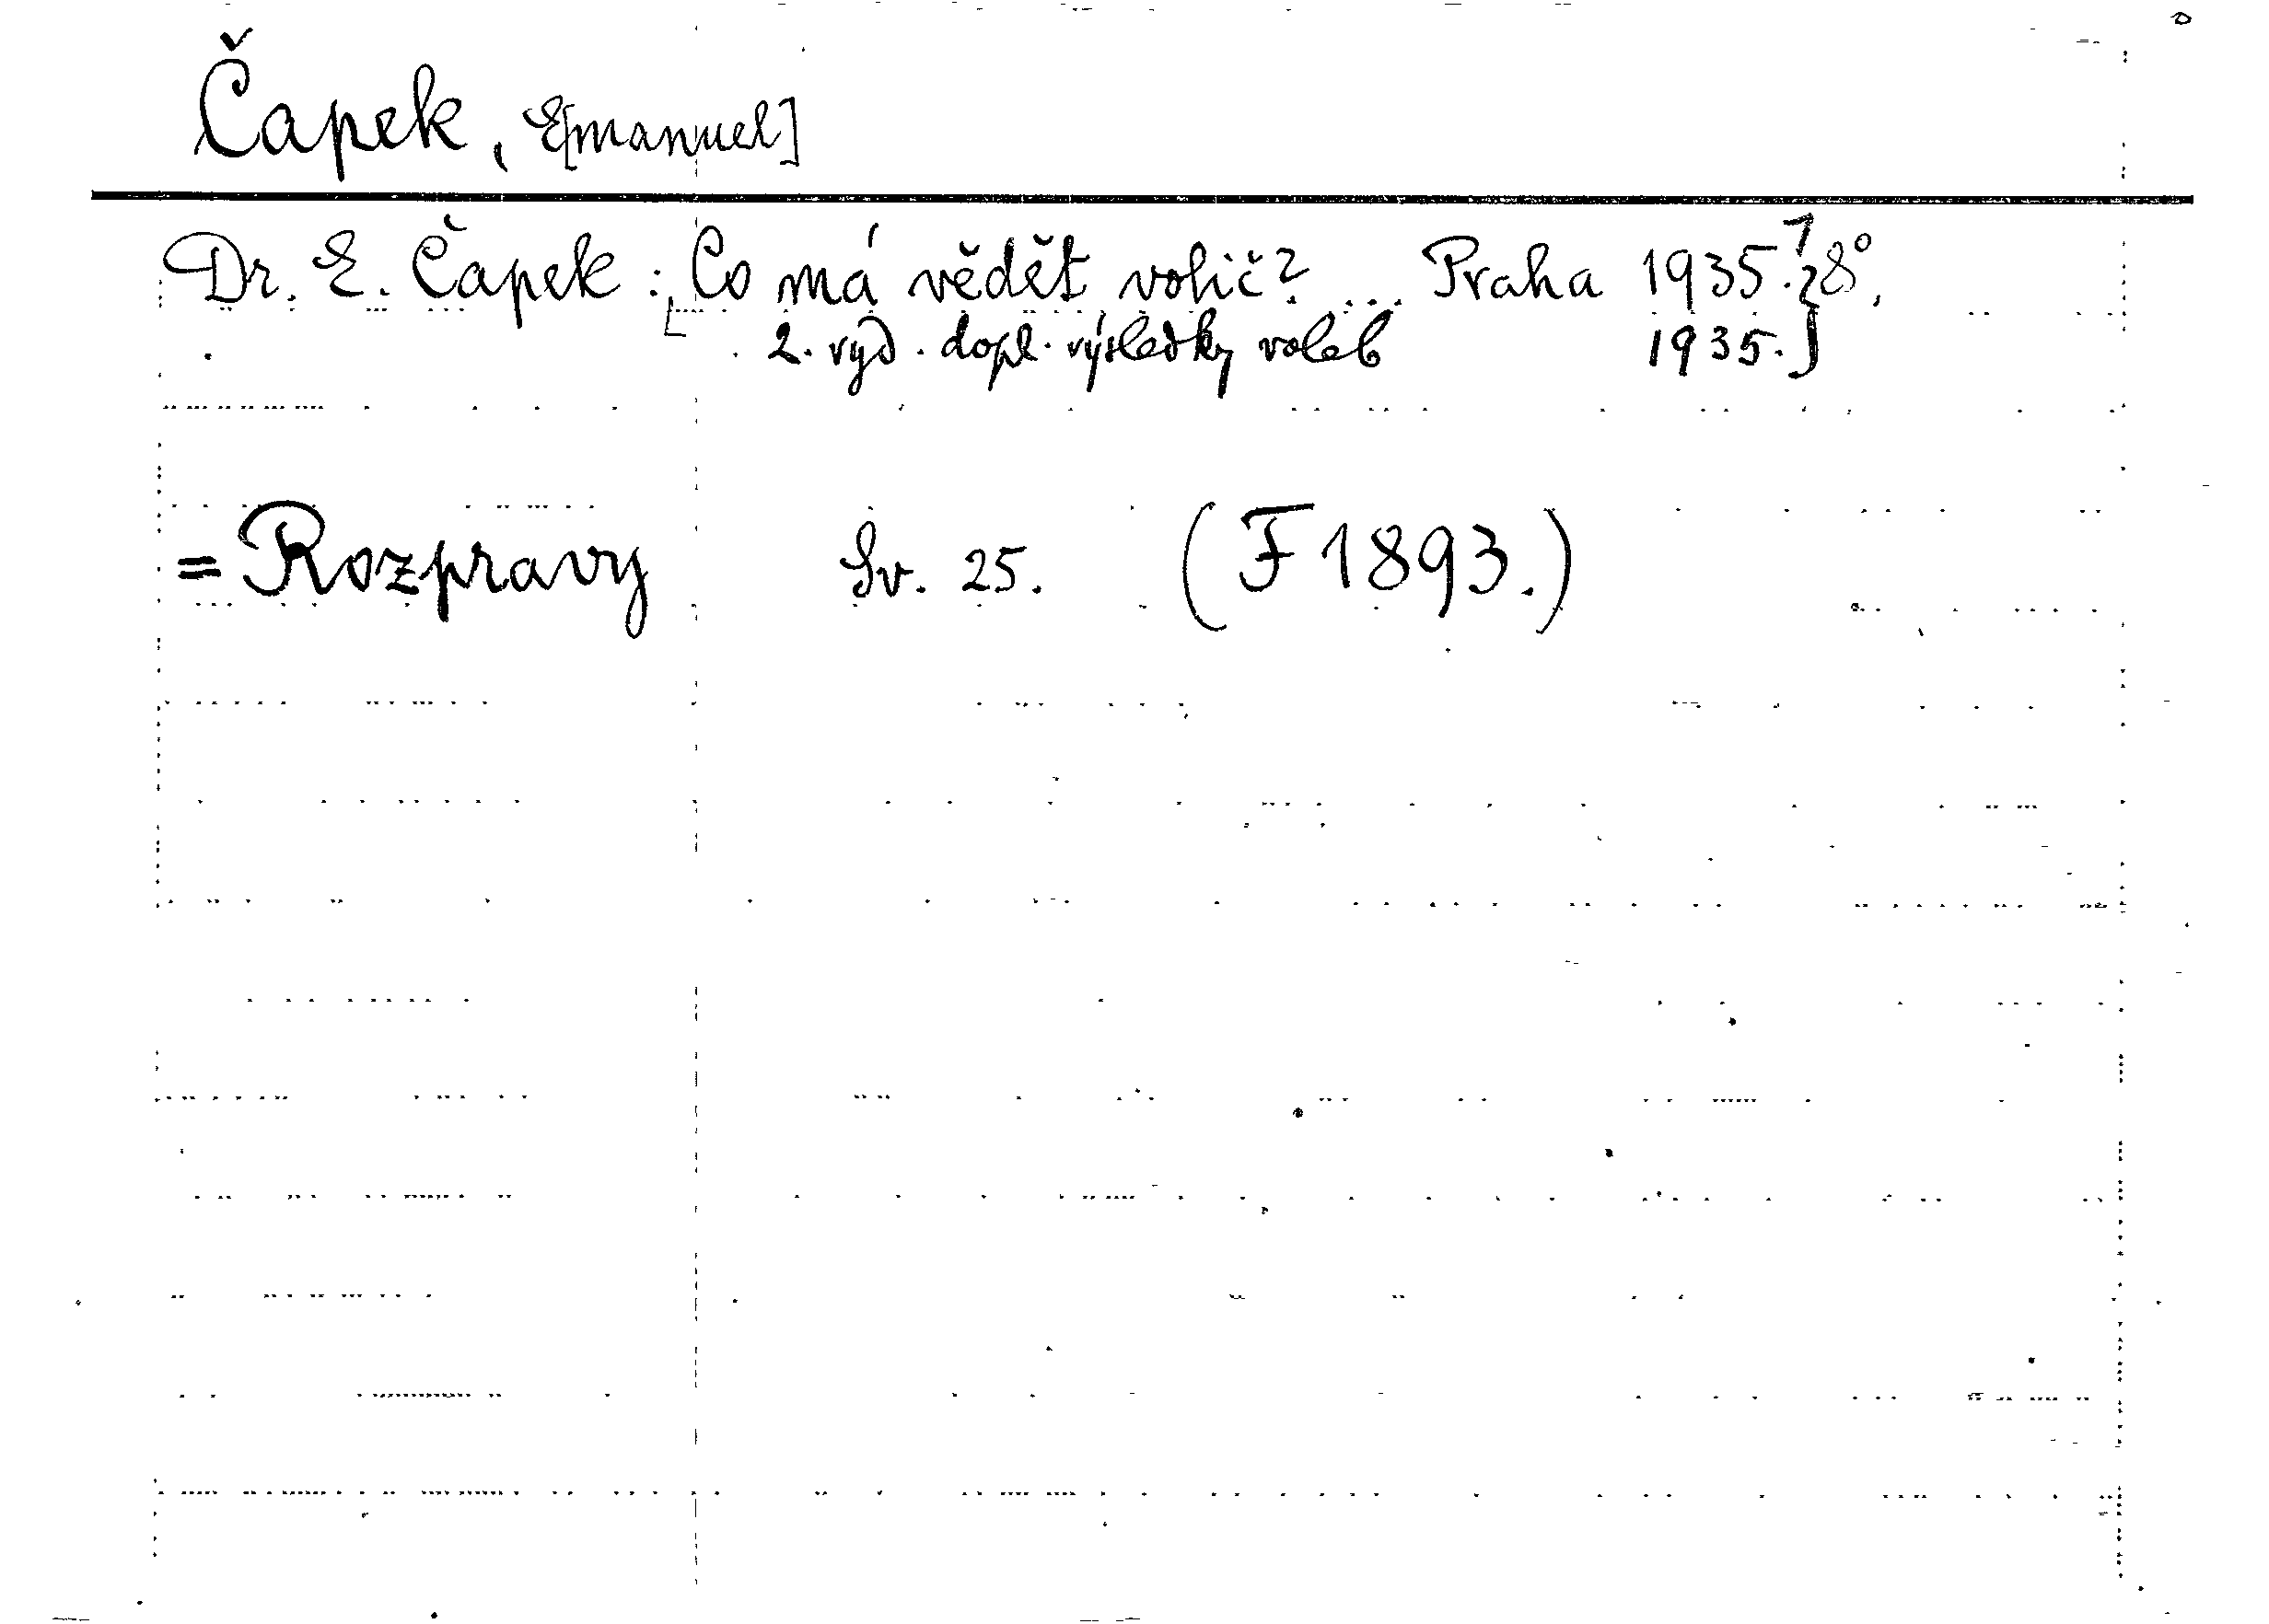 Čapek, E[manuel]
Dr. E. Čapek: Co má vědět volič? ... Praha 1935. 8°,
2. vyd. dopl. výsledky voleb 1935.
= Rozpravy Sv. 25. (F 1893.)